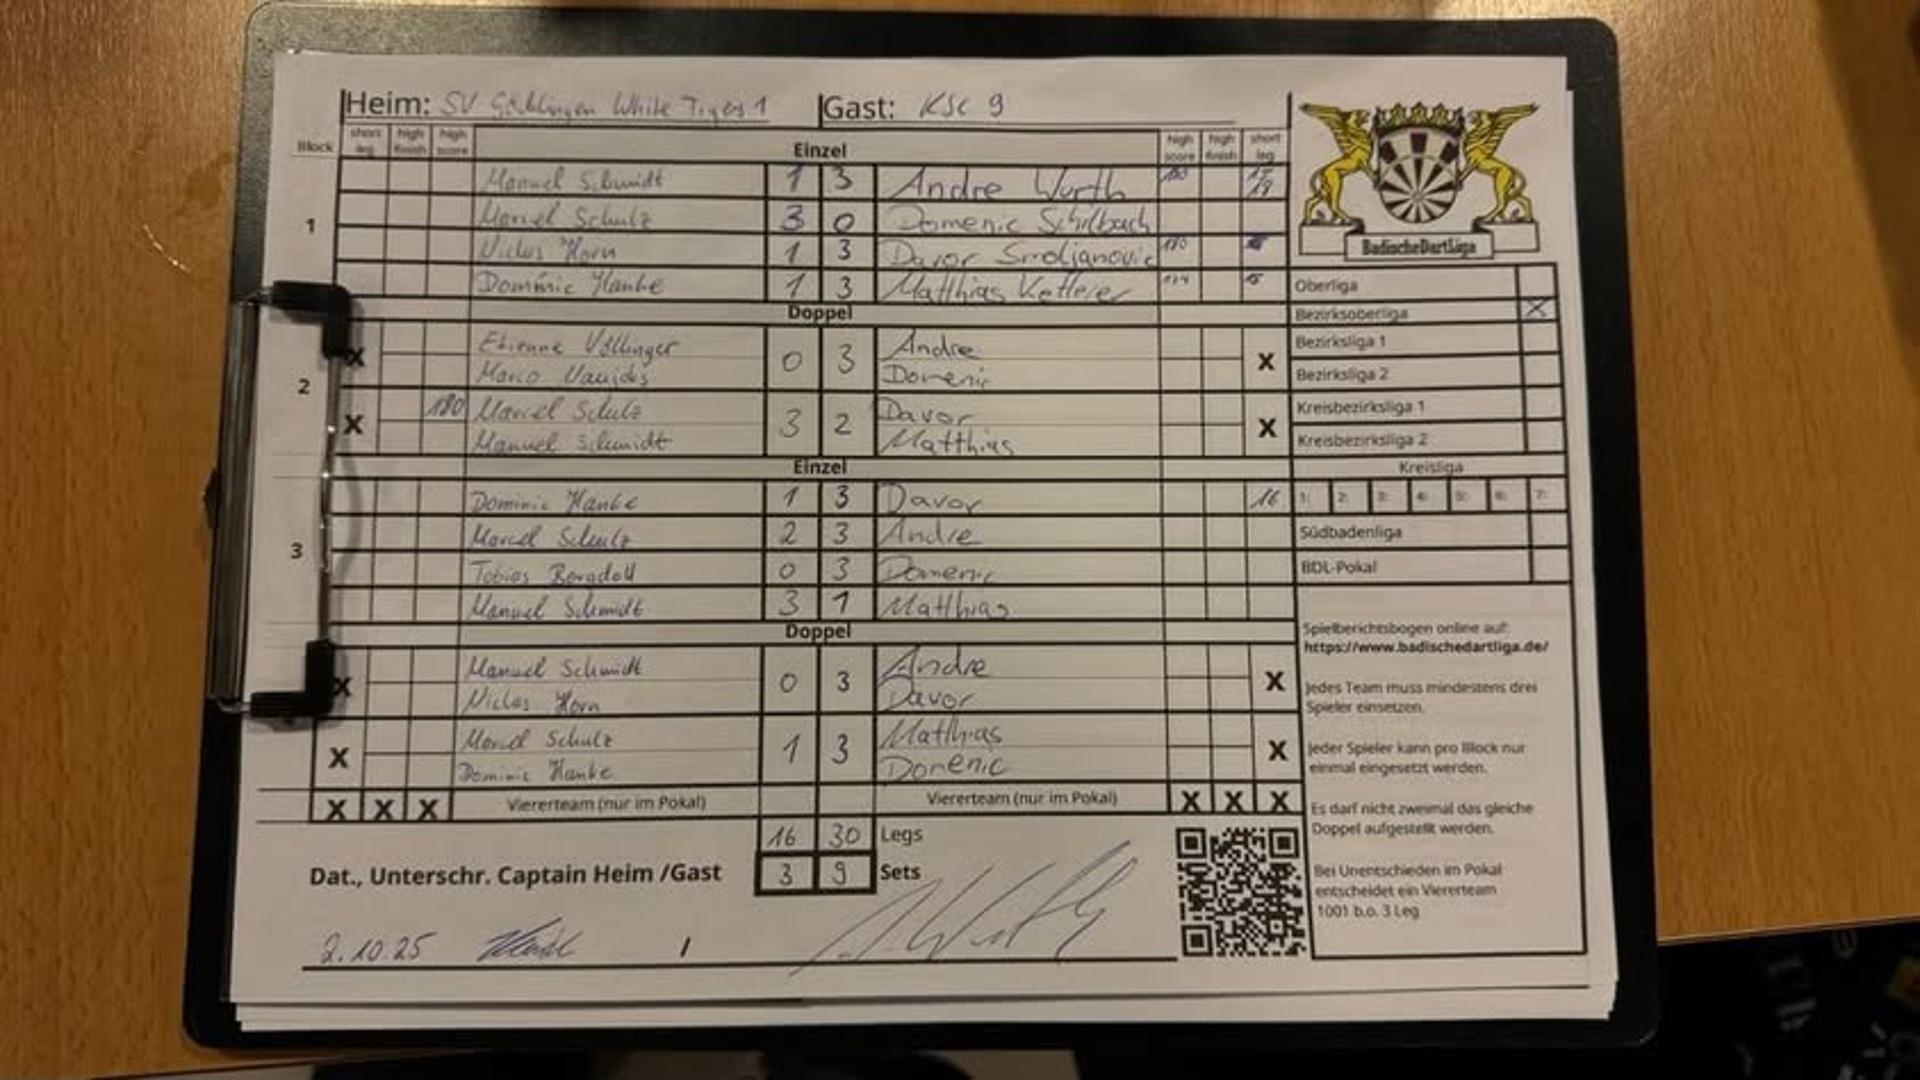 Heim: SV Göbbingen White Tigers 1 Gast: KSC 9
Block short leg high finish high score Einzel high score high finish short leg
1
Manuel Schmidt 1 3 Andre Wurth 180 17 19
Marcel Schulz 3 0 Domenic Schilbach
Niclas Horn 1 3 Davor Smoljanovic 180
Dominic Hanke 1 3 Matthias Ketterer
Doppel
2
Etienne Völlinger 0 3 Andre X
Marco Domenic
X 180 Marcel Schulz 3 2 Davor X
Manuel Schmidt Matthias
Einzel
3
Dominic Hanke 1 3 Davor 16
Marcel Schulz 2 3 Andre
Tobias 0 3 Domenic
Manuel Schmidt 3 1 Matthias
Doppel
X Manuel Schmidt 0 3 Andre X
Niclas Horn Davor
X Marcel Schulz 1 3 Matthias X
Dominic Hanke Domenic
X X X Viererteam (nur im Pokal) Viererteam (nur im Pokal) X X X
16 30 Legs
Dat., Unterschr. Captain Heim /Gast 3 9 Sets
2.10.25 /
BadischeDartLiga
Oberliga
Bezirksoberliga X
Bezirksliga 1
Bezirksliga 2
Kreisbezirksliga 1
Kreisbezirksliga 2
Kreisliga
1: 2: 3: 4: 5: 6: 7:
Südbadenliga
BDL-Pokal
Spielberichtsbogen online auf:
https://www.badischedartliga.de/
Jedes Team muss mindestens drei
Spieler einsetzen.
Jeder Spieler kann pro Block nur
einmal eingesetzt werden.
Es darf nicht zweimal das gleiche
Doppel aufgestellt werden.
Bei Unentschieden im Pokal
entscheidet ein Viererteam
1001 b.o. 3 Leg